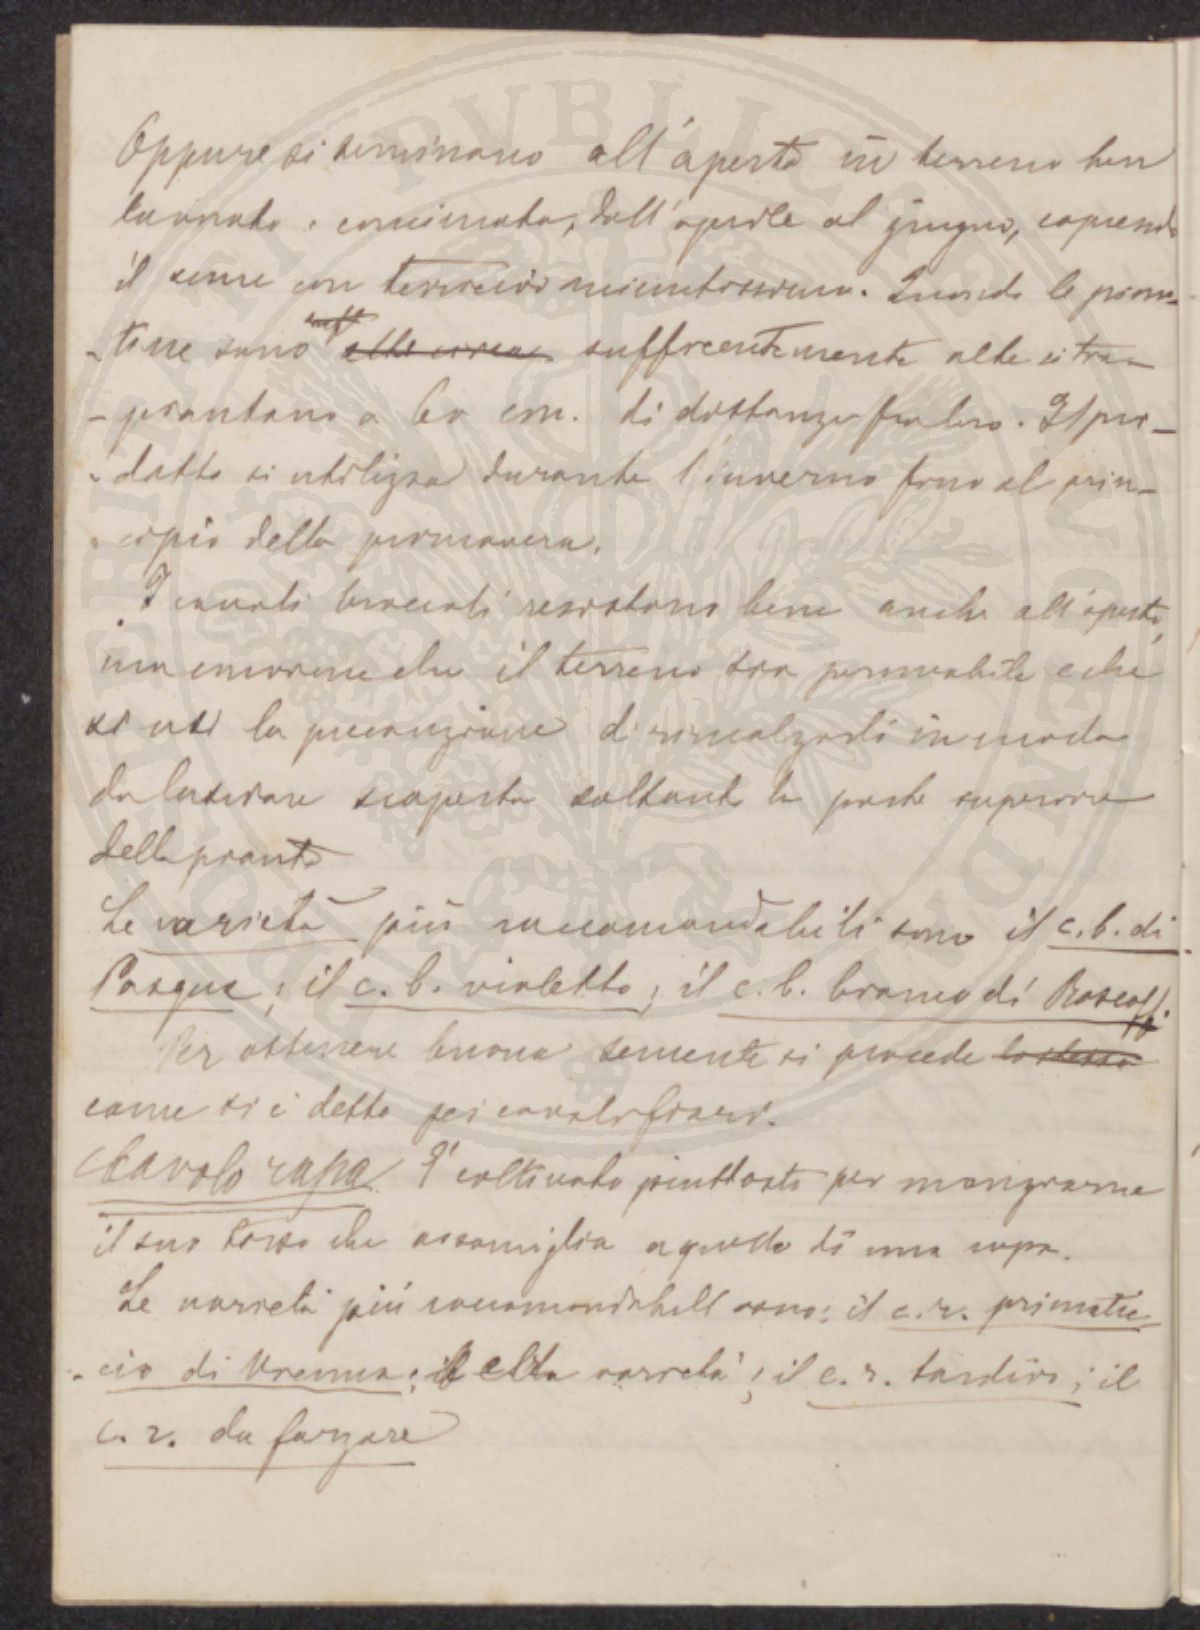 Oppure si seminano all'aperto in terreno ben
lavorato e concimato, dall'aprile al giugno, coprendo
il seme con terriccio minutissimo. Quando le pian-
-tine sono suff alte circa sufficentemente alte si tra-
-piantano a 60 cm. di distanza fra loro. Il pro-
-dotto si utilizza durante l'inverno fino al prin-
-cipio della primavera.
I cavoli broccoli resistono bene anche all'aperto,
ma conviene che il terreno sia permeabile e che
si usi la precauzione di rincalzarli in modo
da lasciare scoperta soltanto la parte superiore
della pianta
Le varietà più raccomandabili sono il c. b. di
Pasqua; il c. b. violetto; il c. b. bianco di Roscoff.
Per ottenere buona semente si procede lo stesso
come si è detto pei cavolifiori.
Cavolo rapa È coltivato piuttosto per mangiarne
il suo torso che assomiglia a quello di una rapa.
Le varietà più raccomandabili sono: il c. r. primatic-
-cio di Vienna; il c. r. tardivo; il
c. r. da forzare